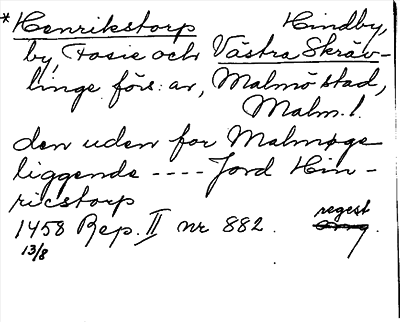 *Henrikstorp Hindby,
by, Fosie och Västra Skräv-
linge förs:ar, Malmö stad,
Malm. l.
den uden for Malmøge
liggende ---- Jord Hin-
ricstorp
1458 Rep. II nr 882. regest
13/8